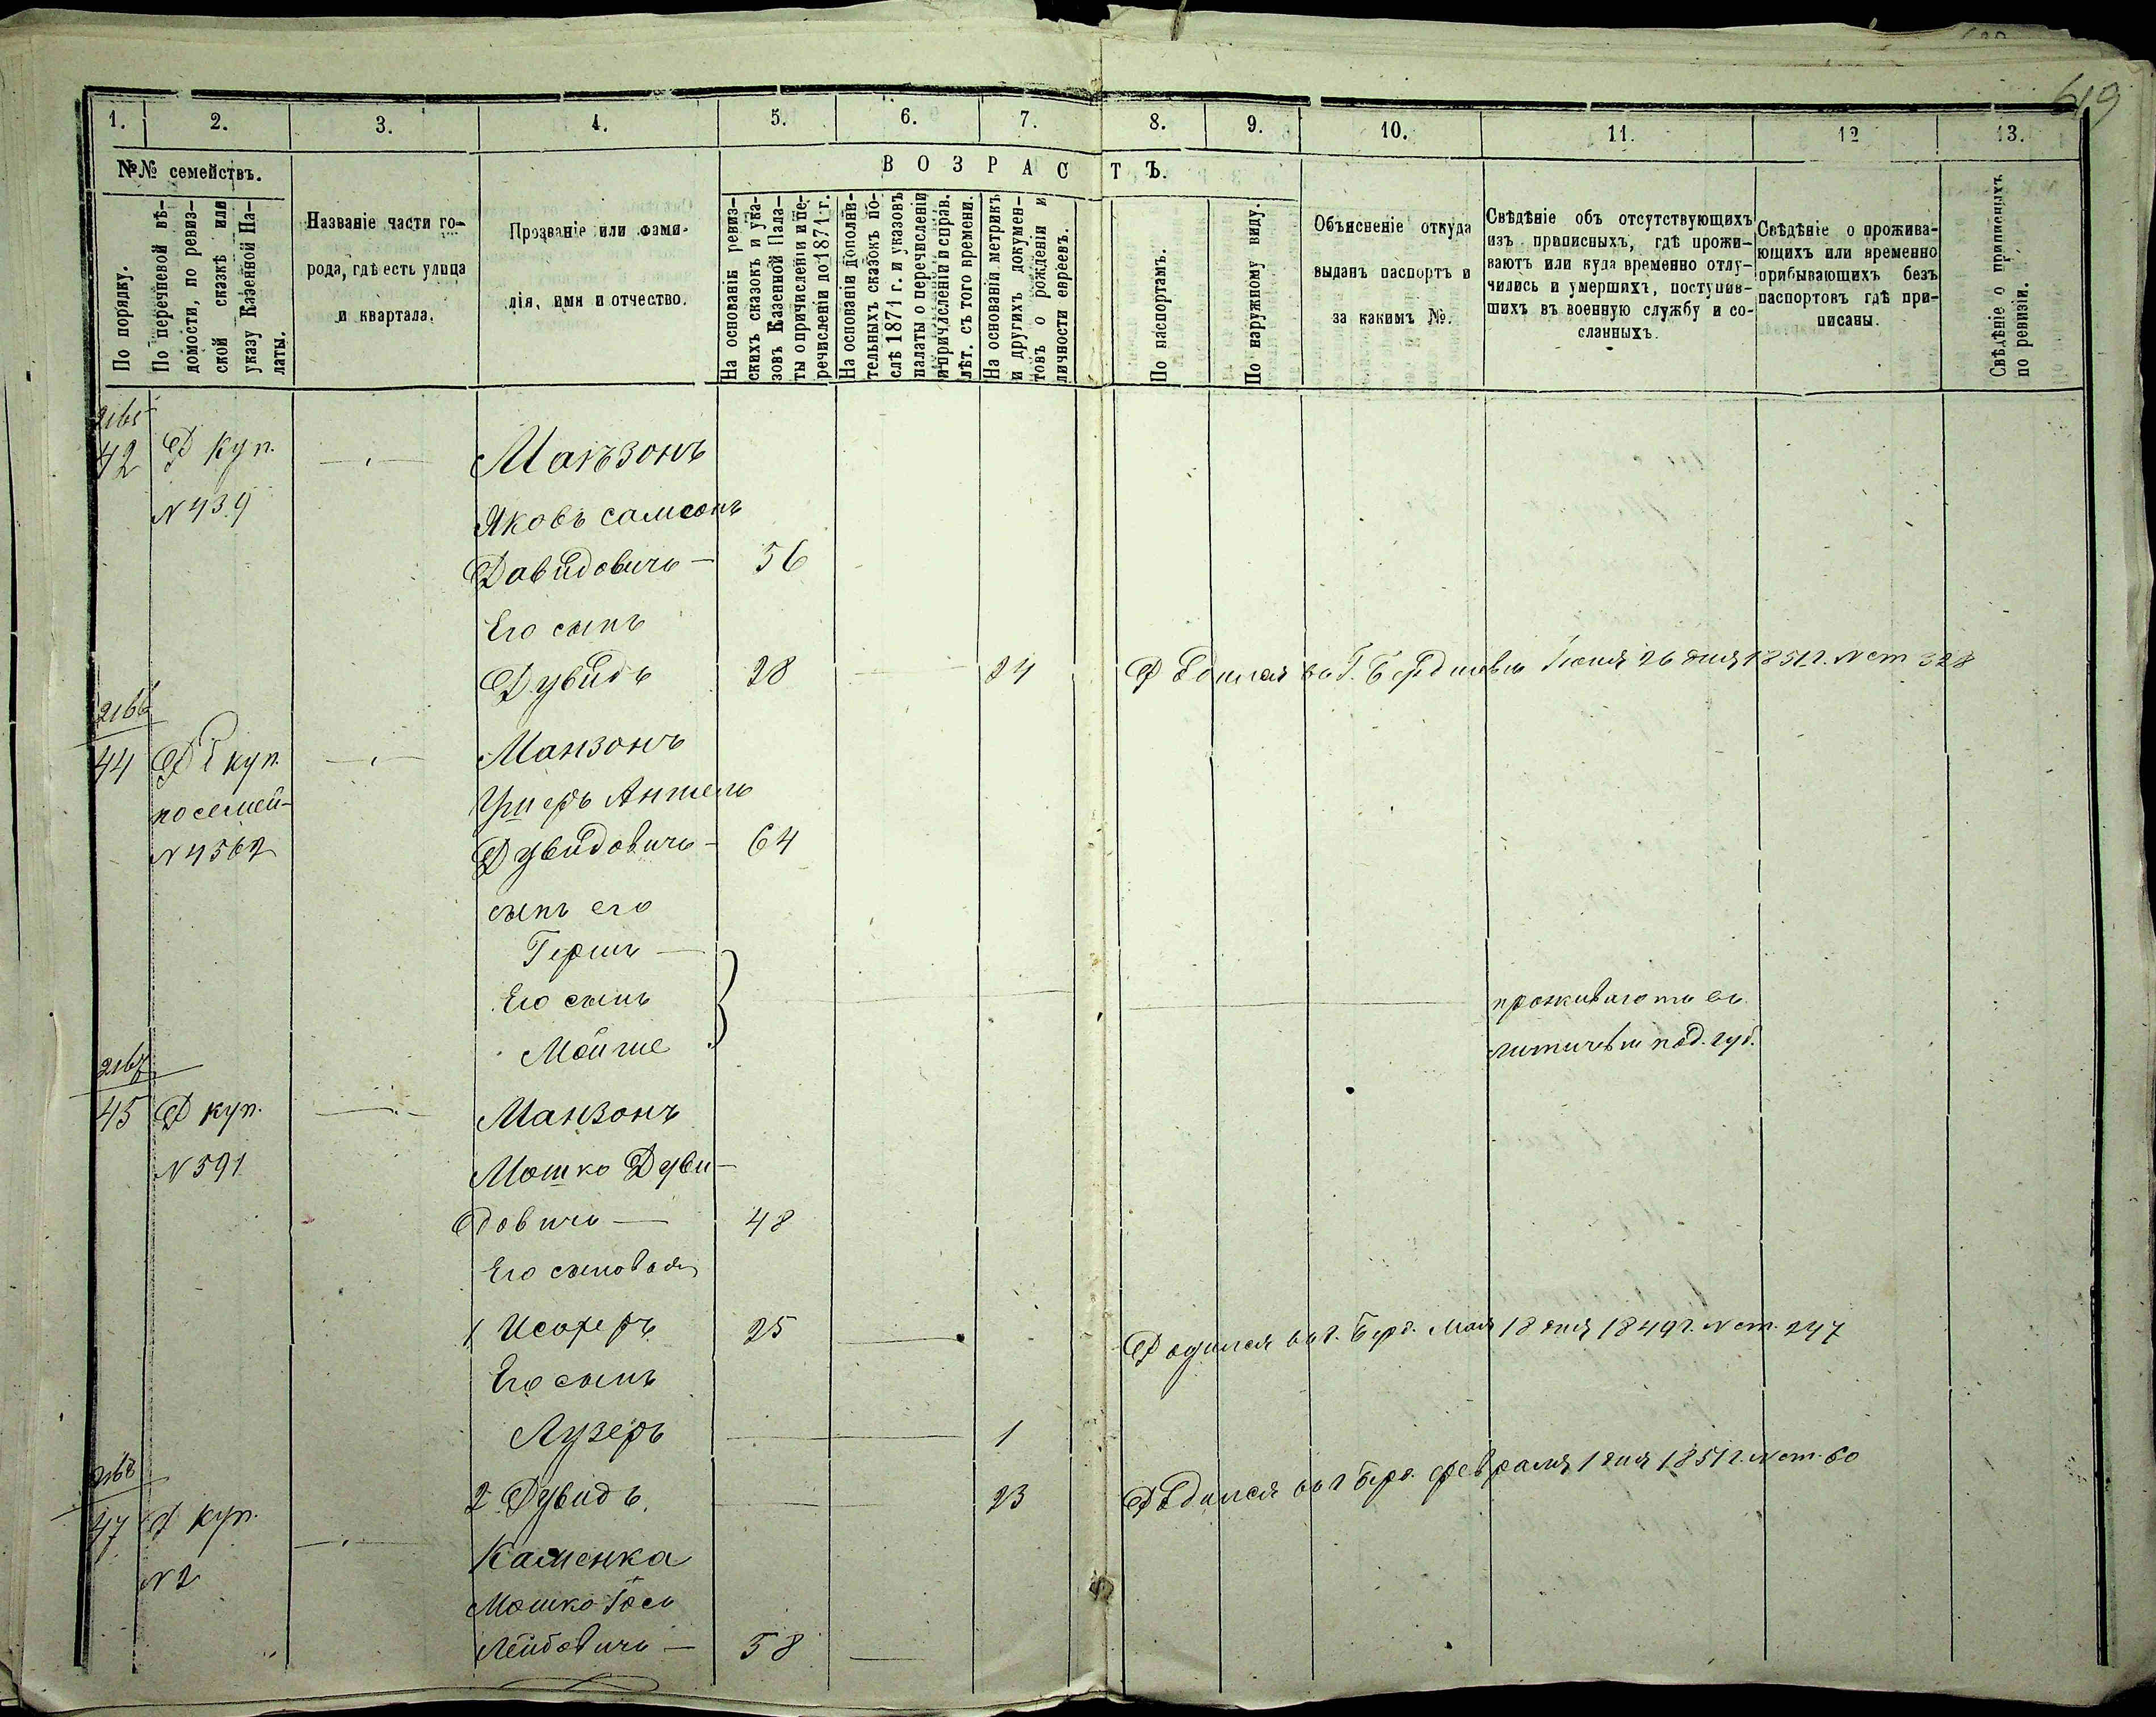 619
1. 2. 3. 4. 5. 6. 7. 8. 9. 10. 11. 12 13.
№№ семействъ.
По порядку.
По перечневой вѣ-
домости, по ревиз-
ской сказкѣ или
указу Казенной Па-
латы.
Названіе части го-
рода, гдѣ есть улица
и квартала.
Прозваніе или фами-
лія, имя и отчество.
ВОЗРАСТЪ.
На основаніи ревиз-
скихъ сказокъ и ука-
зовъ Казенной Пала-
ты о причисленіи и пе-
речисленіи до 1871 г.
На основаніи дополни-
тельныхъ сказокъ по-
слѣ 1871 г. и указовъ
палаты о перечисленіи
и причисленіи справ.
лѣт. съ того времени.
На основаніи метрикъ
и другихъ докумен-
товъ о рожденіи и
личности евреевъ.
По паспортамъ.
По наружному виду.
Объясненіе откуда
выданъ паспортъ и
за какимъ №.
Свѣдѣніе объ отсутствующихъ
изъ приписныхъ, гдѣ прожи-
ваютъ или куда временно отлу-
чились и умершихъ, поступив-
шихъ въ военную службу и со-
сланныхъ.
Свѣдѣніе о прожива-
ющихъ или временно
прибывающихъ безъ
паспортовъ гдѣ при-
писаны.
Свѣдѣніе о приписныхъ
по ревизіи.
2165
42 Р куп. Манзонъ
N 439 Яковъ Самсонъ
Давидовичъ 56
Его сынъ
Дувидъ 28 24 Родился въ г. Бердичевѣ Іюня 26 дня 1851 г. N ст 328
2166
44 куп. Манзонъ
по семей- Антель
N 4562 Дувидовичъ 64
сынъ его
Гершъ
Его сынъ проживаютъ въ
Мойше Литичевѣ под. губ.
2167
45 Р куп. Манзонъ
N 591 Мошко Дуви-
довичъ 48
Его сыновья
1 Исохеръ 25 Родился въ г. Берд. Мая 18 дня 1849 г. N ст. 247
Его сынъ
Лузеръ 1
2 Дувидъ 23 Родился въ г Берд. февраля 1 дня 1851 г. N ст. 60
2168
47 Р куп. Каменка
N 2 Мошко Іось
Лейбовичъ 58